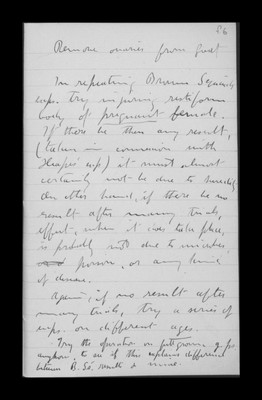 56
Remove ovaries from guest
In repeating Brown Séquard's
exp. try injuring restiform
body of pregnant female.
If there be then any result,
(taken in connexion with
Heape's exp) it must almost
certainly not be due to heredity
On other hand, if there be no
result after many trials,
effect, when it does take place,
is probly not due to microbes,
poison, or any kind
of disease.
Again, if no result after
many trials, try a series of
exps. on different ages.
Try the operation on full grown g. pigs
anyhow, to see if this explains difference
between B. Sé. results & mine.